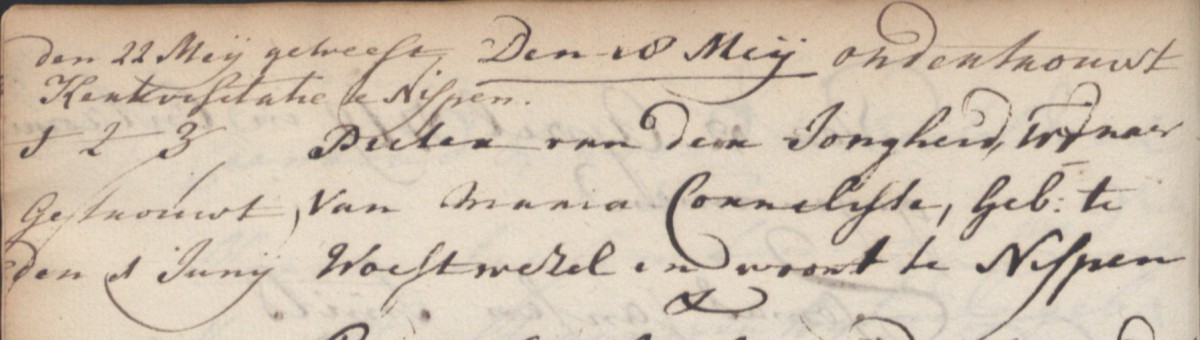 den 22 Meij geweest Den 18 Meij ondertrouwt
Kerkvisitatie te Nispen.
1 2 3 Pieter van den Jongheid, Wednaer
Getrouwt Van Maria Cornelisse, Geb: te
den 1 Junij Woestwezel en woont te Nispen
&